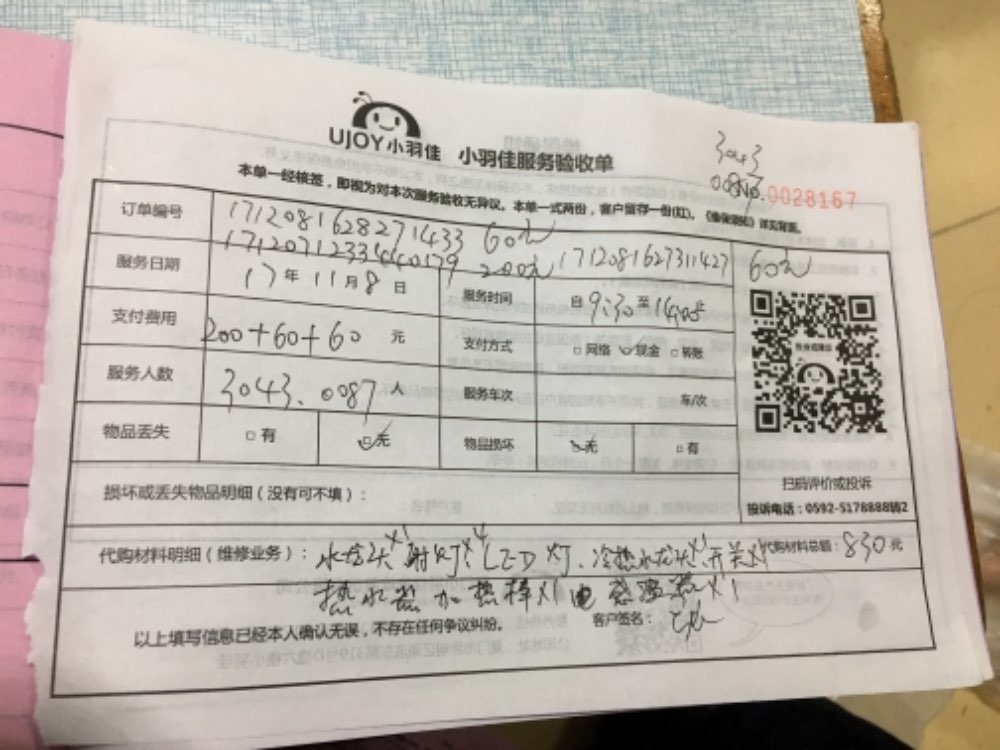 UJOY小羽佳 小羽佳服务验收单
3043
0087
No.0028167
本单一经核签，即视为对本次服务验收无异议。本单一式两份，客户留存一份(红)。《维保须知》详见背面。
订单编号 1712081628271433 60元
1712071233440179 200元 1712081627311427 60元
服务日期 17年11月8日 服务时间 自9:30至14:05
支付费用 200+60+60 元 支付方式 □网络 ☑现金 □转账
服务人数 3043.0087人 服务车次 车/次
物品丢失 □有 ☑无 物品损坏 ☑无 □有
扫码评价或投诉
损坏或丢失物品明细（没有可不填）：
投诉电话：0592-5178888转2
代购材料明细（维修业务）： 水龙头x1射灯x4LED灯、冷热水龙头x1开关x1 代购材料总额：830元
热水器加热棒x1电感温器x1
以上填写信息已经本人确认无误，不存在任何争议纠纷。 客户签名：